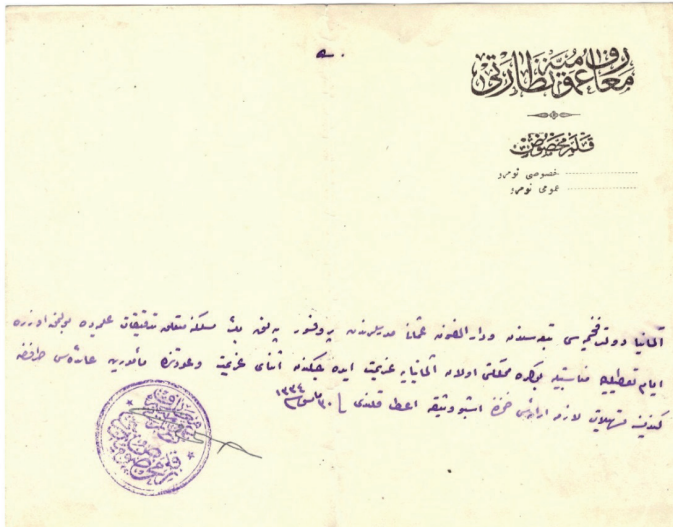 معارف عموميه نظارتى
قلم مخصوص
خصوصى نومرو
عمومى نومرو
آلمانيا دولت فخيمه‌سى تبعه‌سندن ودار الفنون عثمانى مدرسلرندن پروفسور مسلكنه متعلق تدقيقات علميه‌ده بولنمق اوزره
ايام تعطيليه مناسبتيله مملكتى اولان آلمانيايه عزيمت ايده‌جكندن اثناى عزيمت وعودتنده مأمورين عائده‌سى طرفندن
كندينه تسهيلات لازمه ارائه‌سى ضمننده اشبو وثيقه اعطا قلندى ٣٠ مايس ١٣٣٤